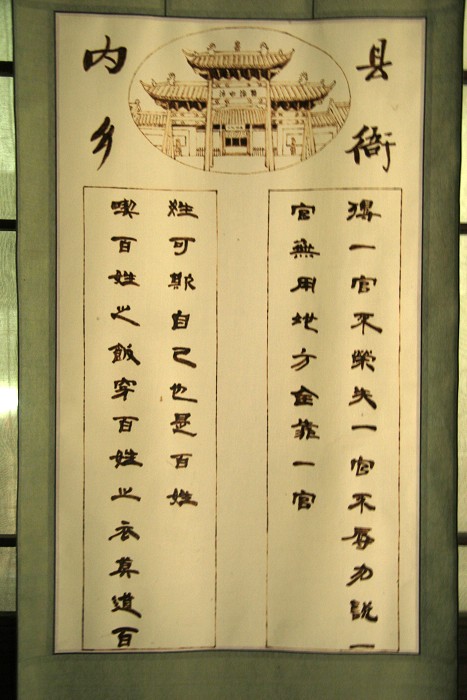 内乡
县衙
得一官不榮失一官不辱勿說一
官無用地方全靠一官
喫百姓之飯穿百姓之衣莫道百
姓可欺自己也是百姓